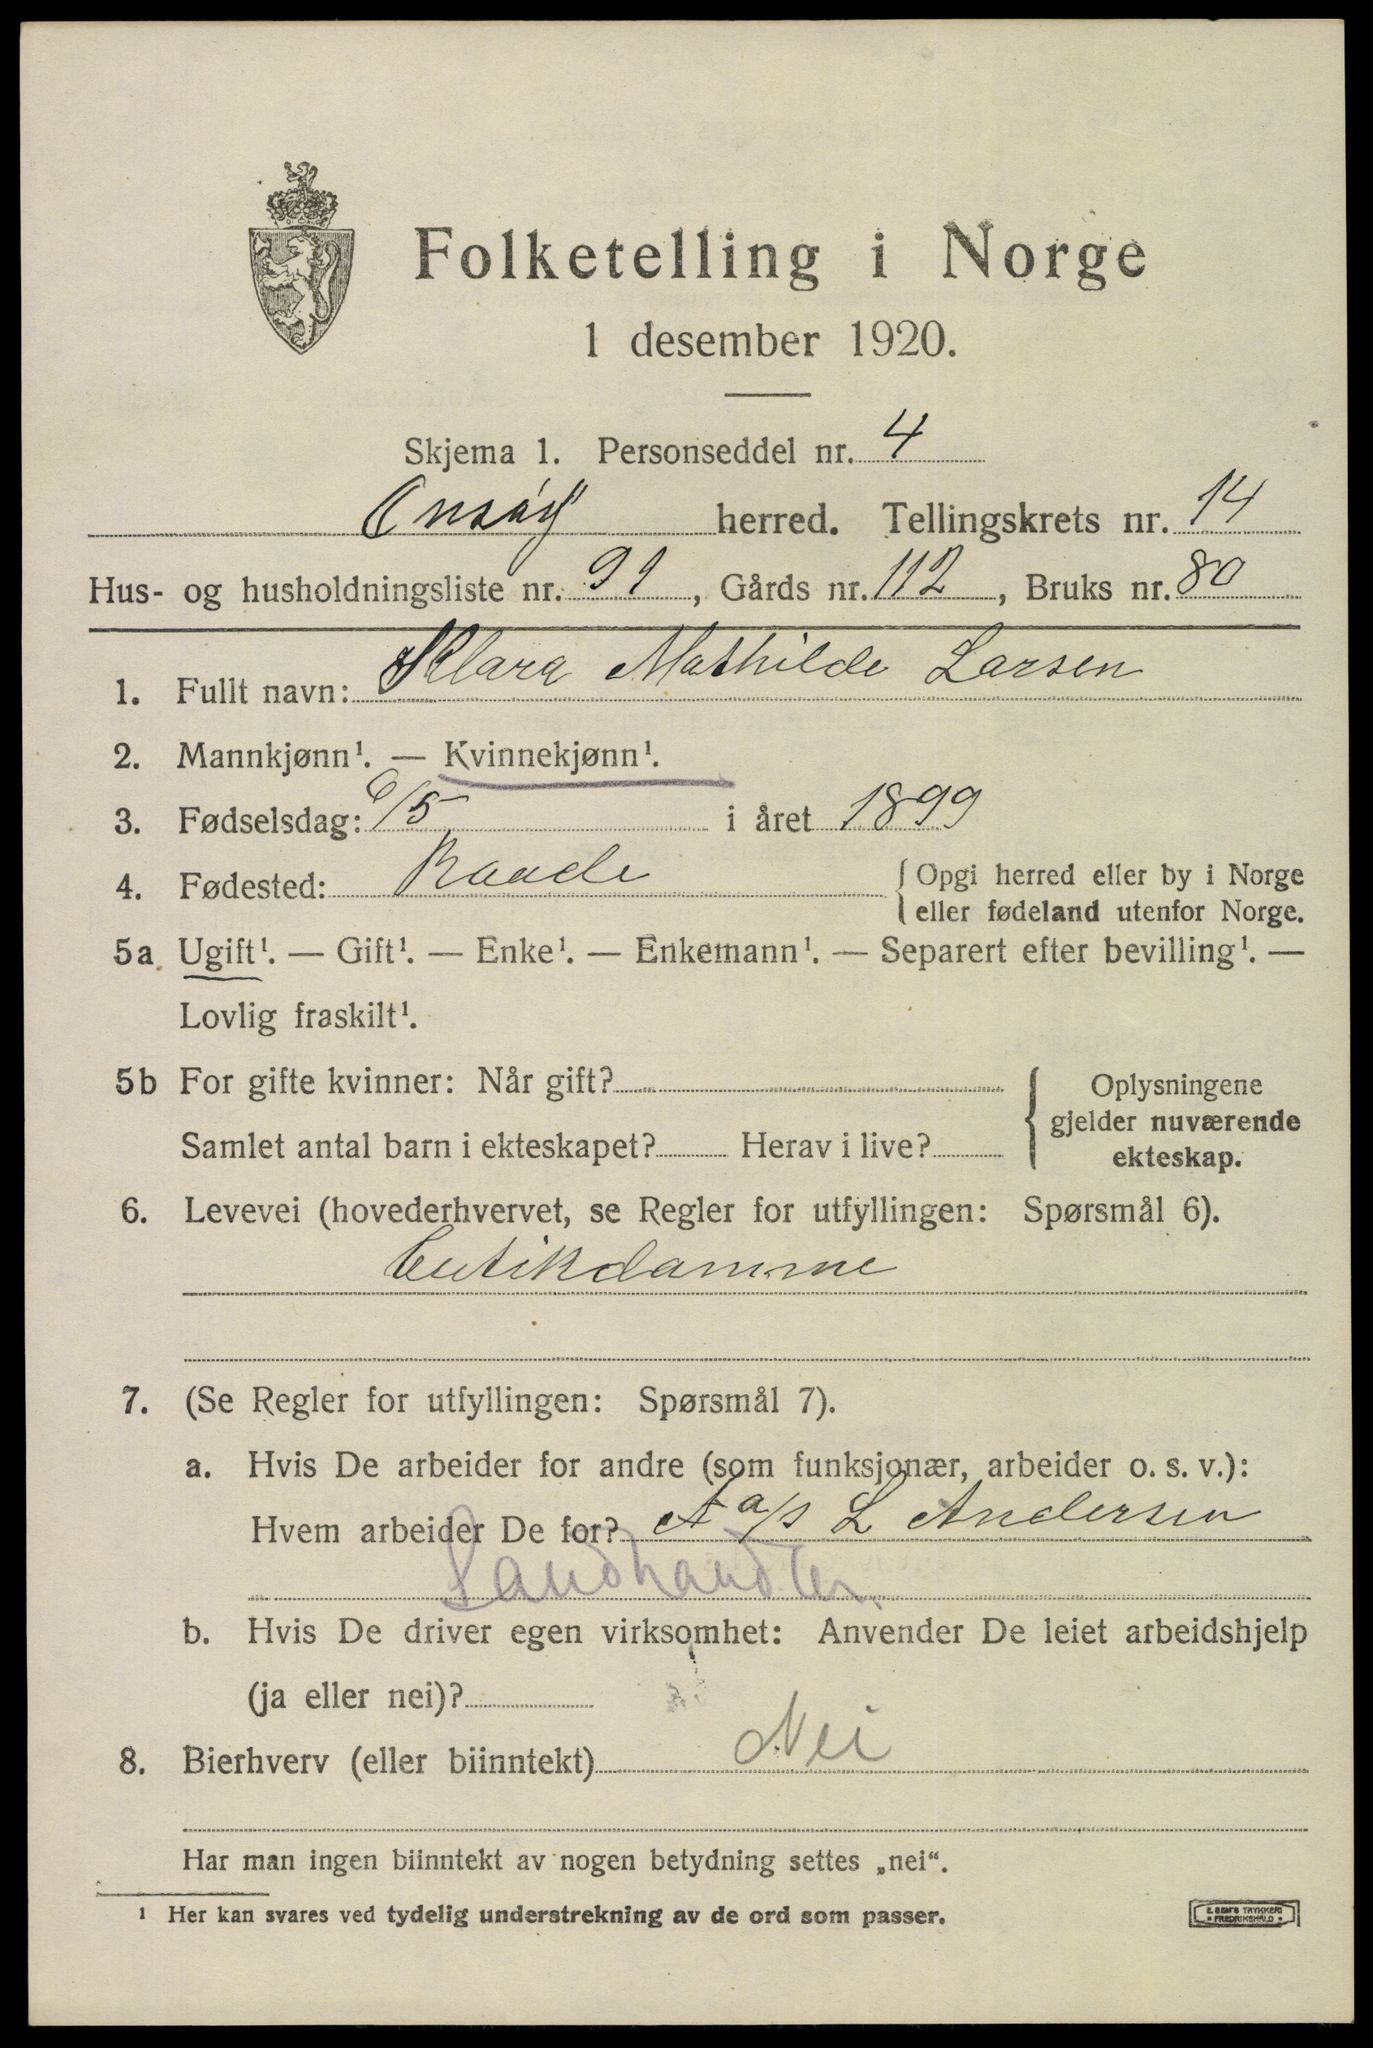 Folketelling i Norge
1 desember 1920.
Skjema 1. Personseddel nr. 4
Onsøy herred. Tellingskrets nr. 14
Hus- og husholdningsliste nr. 91, Gårds nr. 112, Bruks nr. 80
1. Fullt navn: Klara Mathilde Larsen
2. Mannkjønn¹. — Kvinnekjønn¹.
3. Fødselsdag: 6/5 i året 1899
4. Fødested: Raade { Opgi herred eller by i Norge
eller fødeland utenfor Norge.
5a Ugift¹. — Gift¹. — Enke¹. — Enkemann¹. — Separert efter bevilling¹. —
Lovlig fraskilt¹.
5b For gifte kvinner: Når gift?
Samlet antal barn i ekteskapet? Herav i live?
{ Oplysningene
gjelder nuværende
ekteskap.
6. Levevei (hovederhvervet, se Regler for utfyllingen: Spørsmål 6).
Butikdamme
7. (Se Regler for utfyllingen: Spørsmål 7).
a. Hvis De arbeider for andre (som funksjonær, arbeider o. s. v.):
Hvem arbeider De for? A a/s L Andersen
Landhandler.
b. Hvis De driver egen virksomhet: Anvender De leiet arbeidshjelp
(ja eller nei)?
8. Bierhverv (eller biinntekt) Nei
Har man ingen biinntekt av nogen betydning settes „nei“.
¹ Her kan svares ved tydelig understrekning av de ord som passer.
E. SEM'S TRYKKERI
FREDRIKSHALD